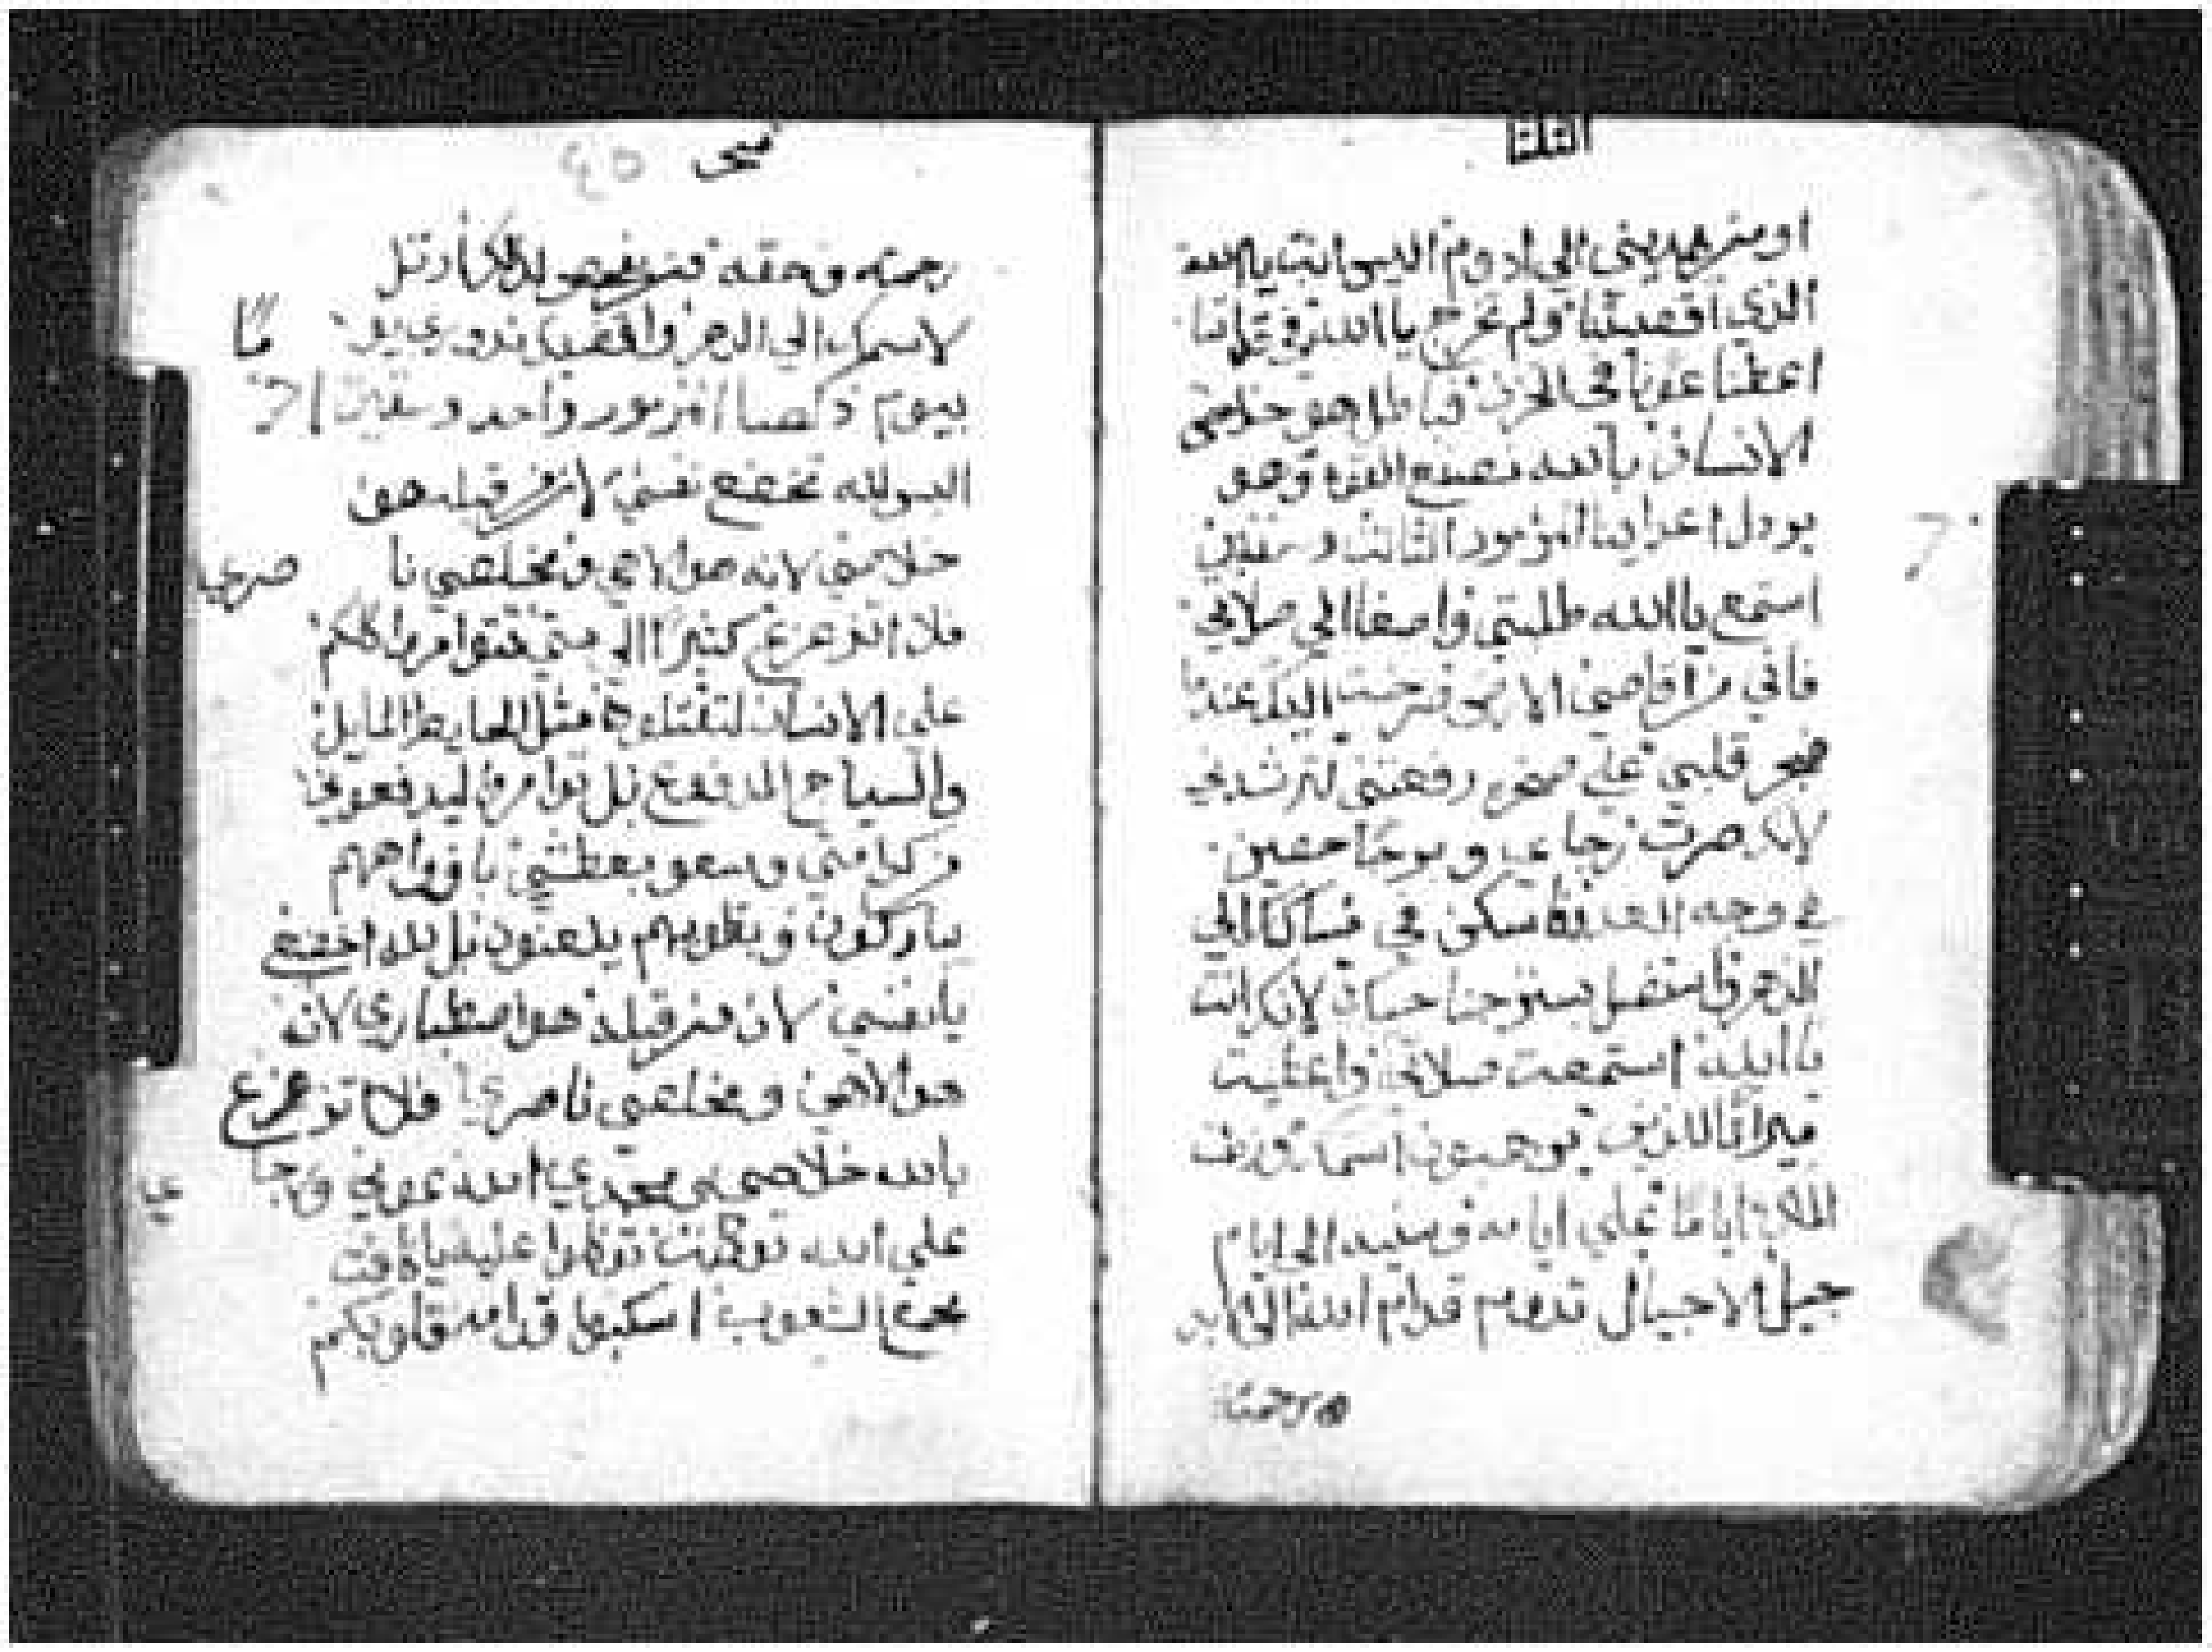 الثلثا
او من يهديني الي ادوم اليس انت يا الله
الذي اقصيتنا ولم تخرج يا الله في قواتنا
اعطنا عونا في الحزن فباطل هو خلاص
الانسان بالله نصنع القوه وهو
يودل اعداينا المزمور الثالث وستين
استمع يا الله طلبتي واصغا الي صلاتي
فاني من اقاصي الارض صرخت اليك عندما
ضجر قلبي علي صخره رفعتني لترشدني
لانك صرت رجاي وبرجا حصين
في وجه العدو فاسكن في مساكنك الي
الدهر واستظل بستر جناحيك لانك انت
يا الله استمعت صلاتي واعطيت
ميراثا للذين يرهبون اسمك وزدت
الملك اياما علي ايامه وسنيه الي ايام
جيل الاجيال تدوم قدام الله الي الابد
رحمته
مسى ٤٥
رحمته وحقه من يفحص لذلك ارتل
لاسمك الي الدهر واقضي ندوري يوما
بيوم المزمور واحد وستين
اليس لله تخضع نفسي لان من قبله هو
خلاصي لانه هو الاهي ومخلصي ناصري
فلا اتزعزع كثيرا الي متي تقوامروا كلكم
علي الانسان لتقتلوه مثل الحايط المايل
والسياج المدفوع بل توامروا ليدفعوني
من كرامتي وسعو بعطشي بافواههم
يباركون وبقلوبهم يلعنون بل لله اخضعي
يا نفسي لان من قبله هو اصطباري لانه
هو الاهي ومخلصي ناصري فلا تزعزع
بالله خلاصي مجدي الله عوني ورجاي
علي الله توكلت توكلوا عليه يا
مجمع الشعوب اسكبوا قدامه قلوبكم